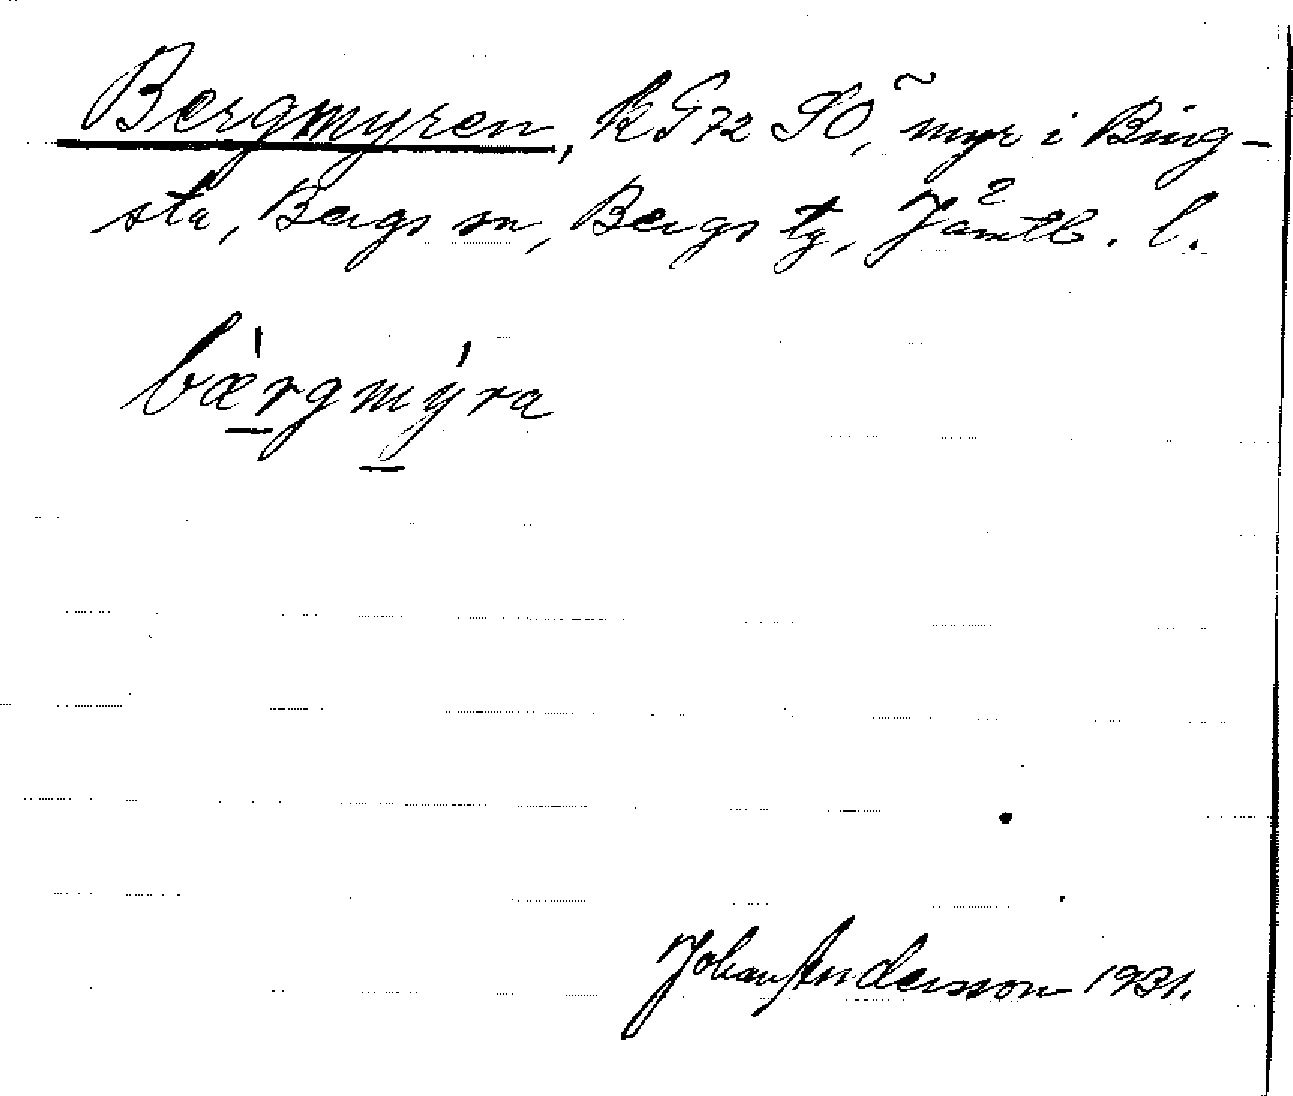 Bergmyren, k G 72 SO, myr i Bing-
sta, Bergs sn, Bergs tg, Jämtl. l.
bærgmýra
Johan Andersson 1931.